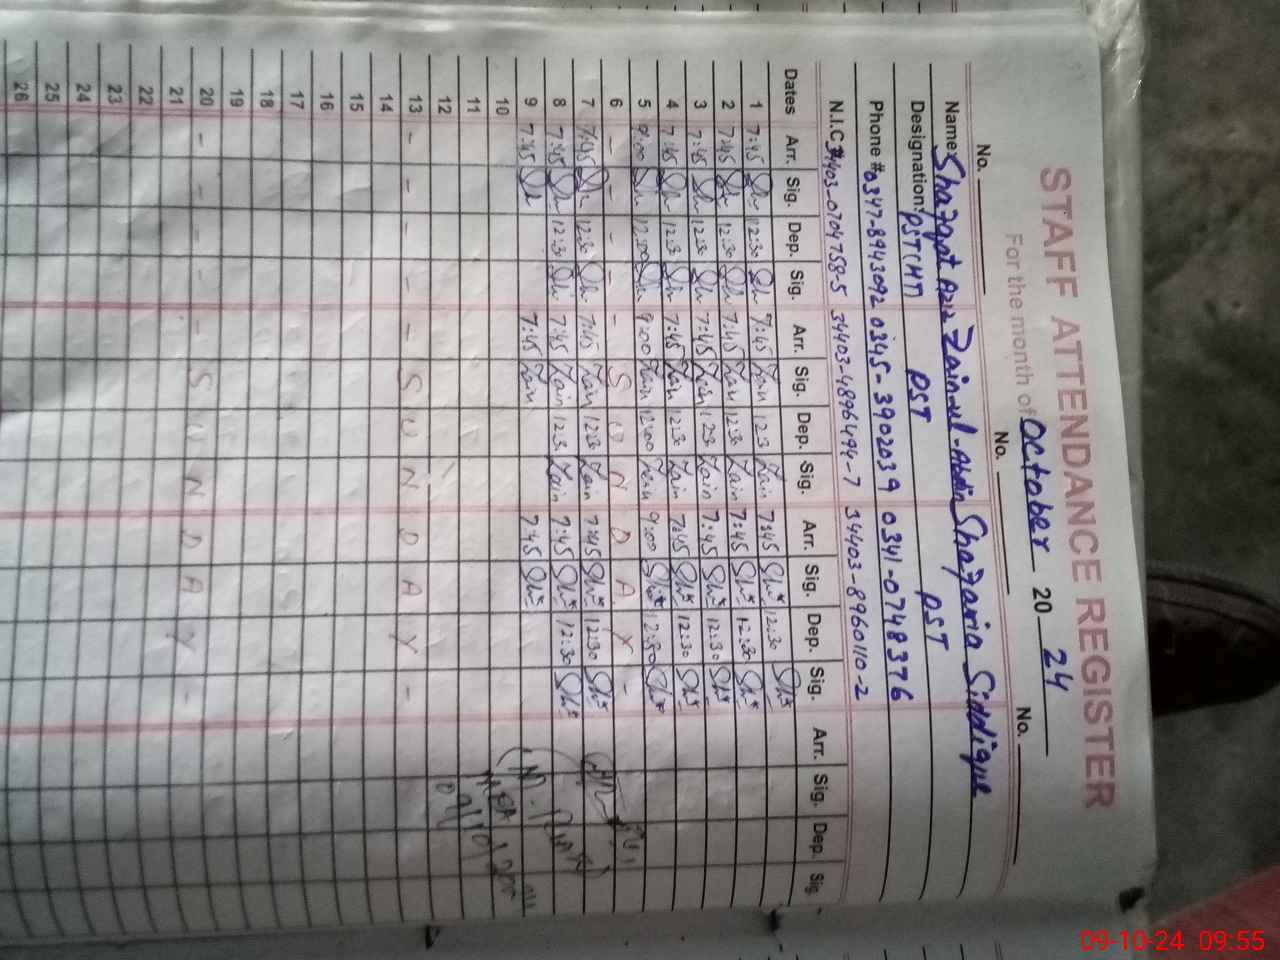 STAFF ATTENDANCE REGISTER
For the month of October 20 24
No. No. No.
Name: Shafqat Aziz Zain-ul-Abdin Shafaria Siddique
Designation: PST(HT) PST PST
Phone # 0347-8943092 0345-3902039 0341-0748376
N.I.C # 34403-0704758-5 34403-4896494-7 34403-8960110-2
Dates Arr. Sig. Dep. Sig. Arr. Sig. Dep. Sig. Arr. Sig. Dep. Sig. Arr. Sig. Dep. Sig.
1 7:45 12:30 7:45 Zain 12:3 Zain 7:45 12:30
2 7:45 12:30 7:45 Zain 12:30 Zain 7:45 12:30
3 7:45 12:30 7:45 Zain 12:30 Zain 7:45 12:30
4 7:45 12:30 7:45 Zain 12:30 Zain 7:45 12:30
5 9:00 12:00 9:00 Zain 12:00 Zain 9:00 12:30
6 - - - - - S U N D A Y -
7 7:45 12:30 7:45 Zain 12:30 Zain 7:45 12:30
8 7:45 12:30 7:45 Zain 12:3 Zain 7:45 12:30
9 7:45 7:45 Zain 7:45
10
11
12
13 - - - - - S U N D A Y -
14
15
16
17
18
19
20 - - - - - S U N D A Y -
21
22
23
24
25
26
MEA
09-10-24 09:55